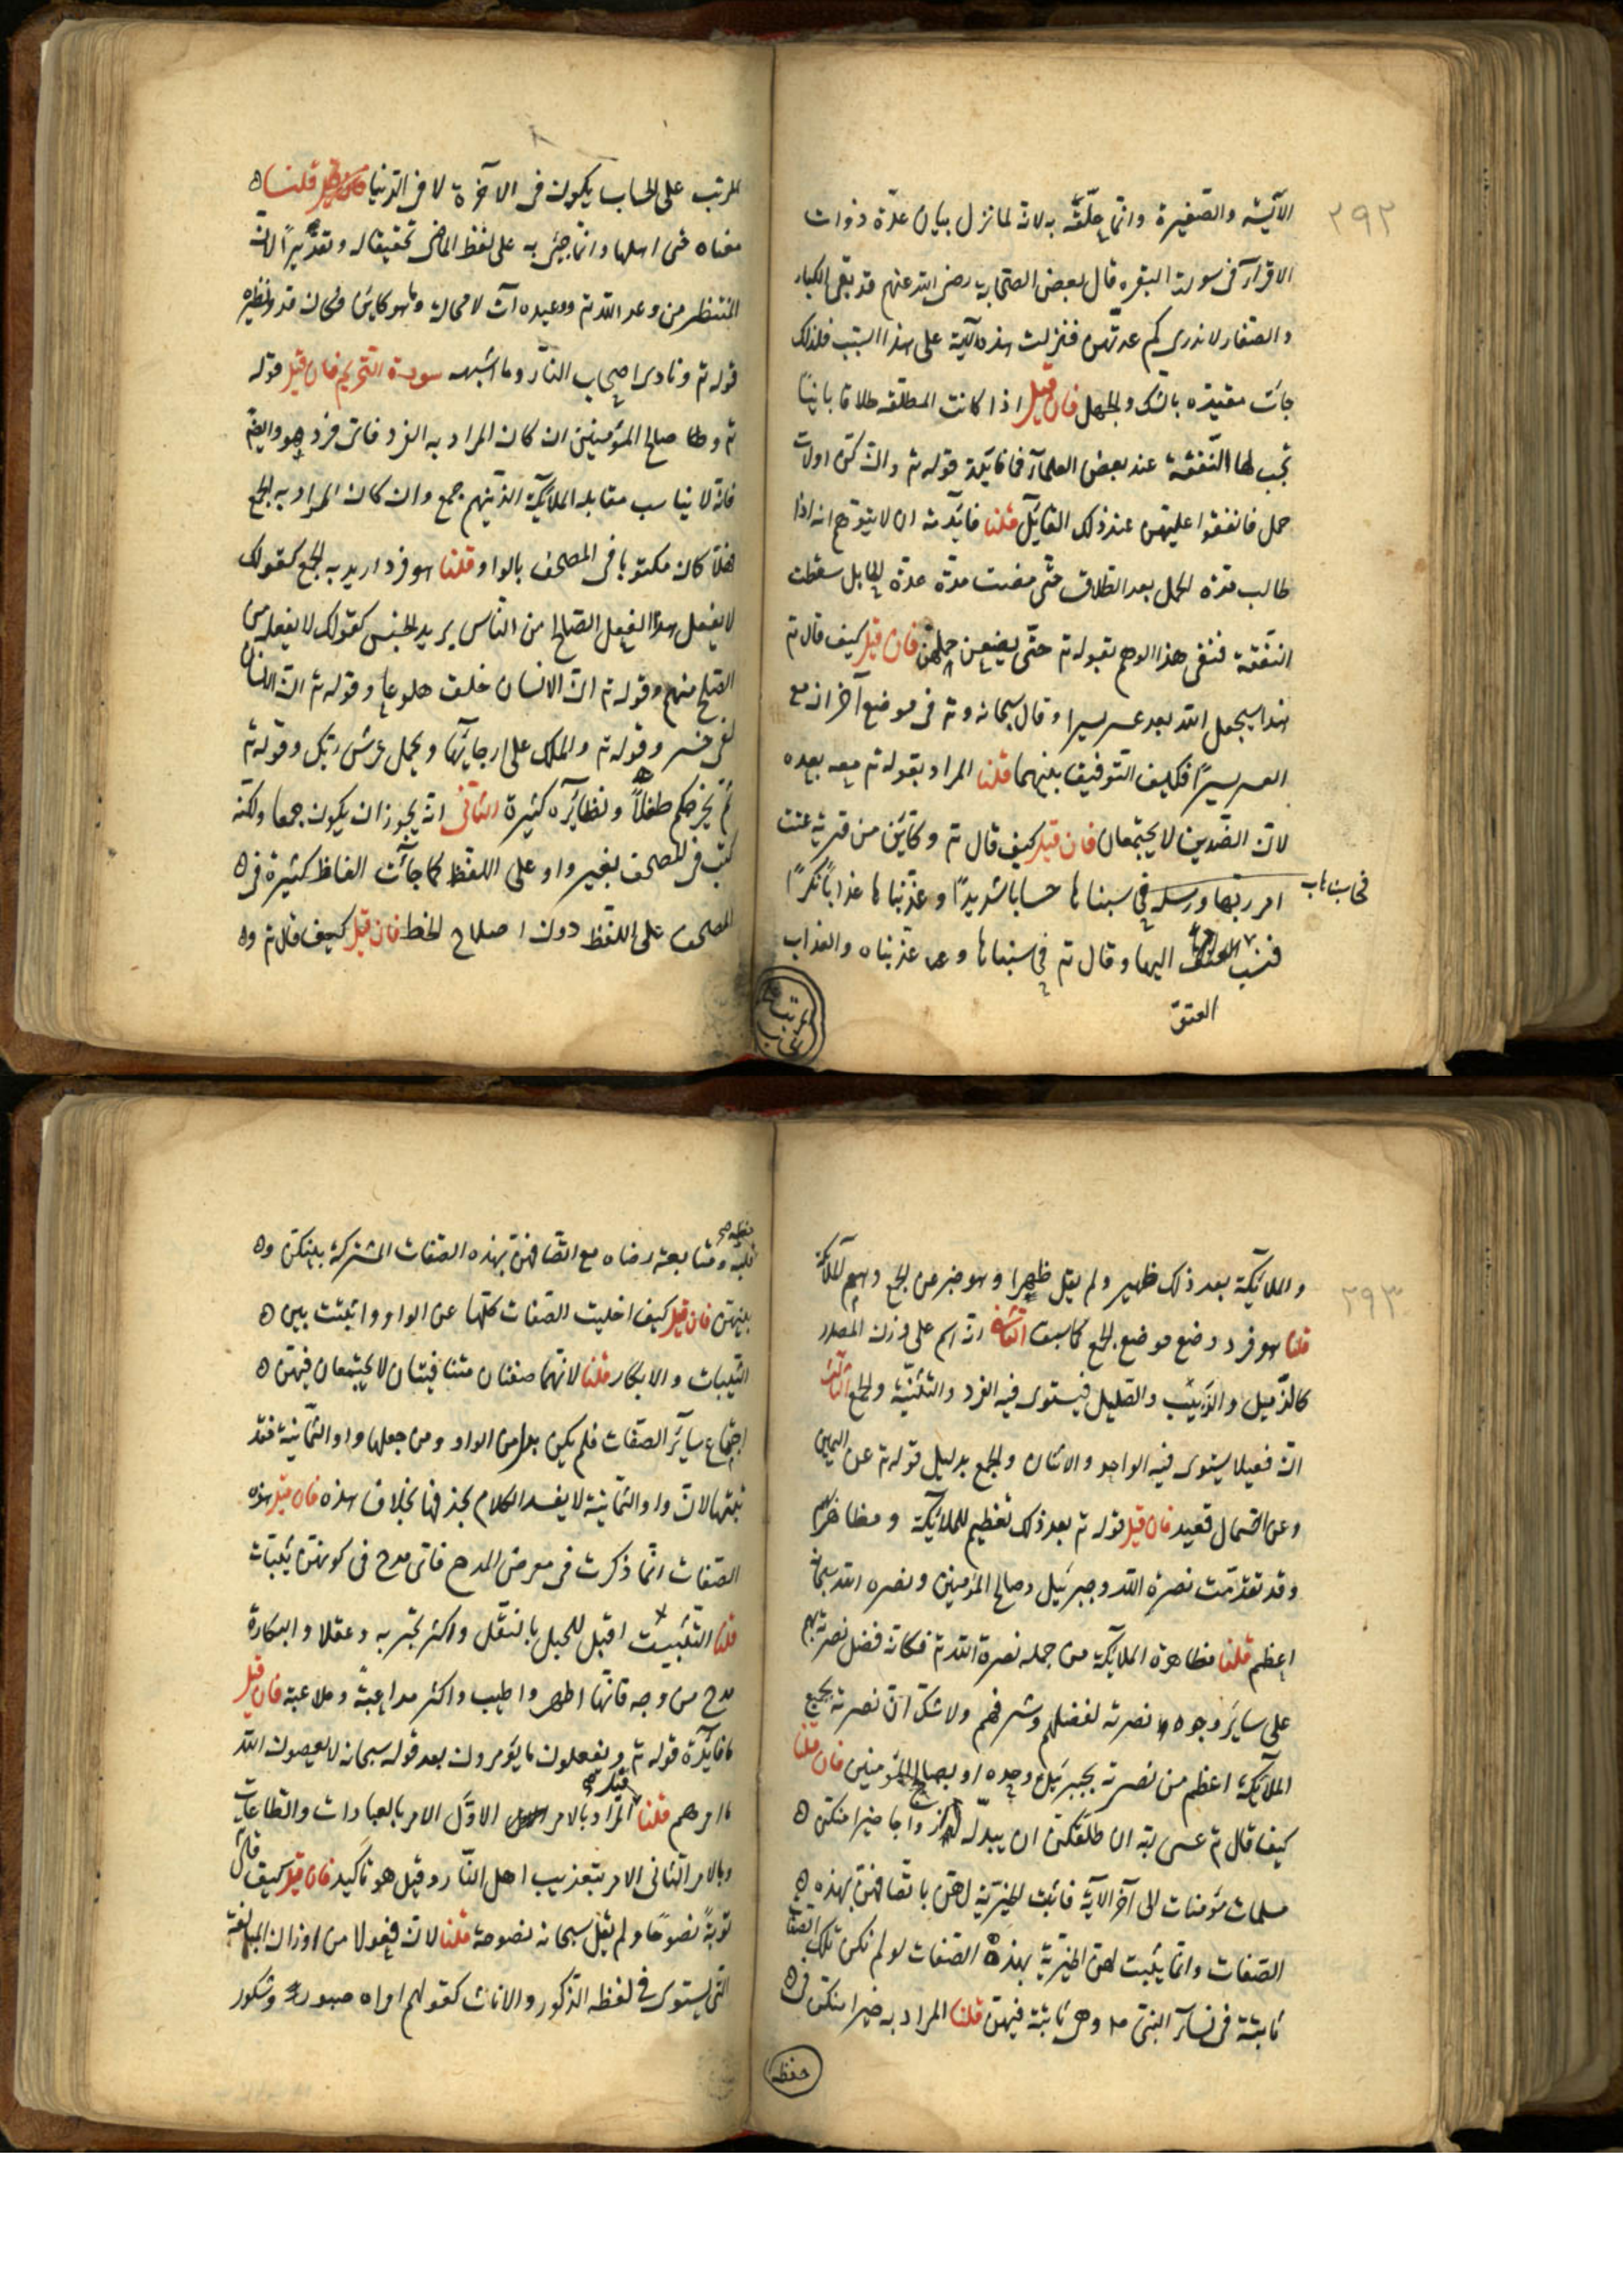 ٢٩٢
الآيسة والصغيرة وانما علقه به لانه لما نزل بيان عدة ذوات
الاقرآء فى سورة البقره قال بعض الصحابة رضى الله عنهم قد بقى الكبار
والصغار لا ندرى كم عدتهن فنزلت هذه الآية على هذا السبب فلذلك
جاءت مقيدة بالشك والجهل فان قيل اذا كانت المطلقه طلاقا باينا
تجب لها النفقة عند بعض العلمآء فما فائدة قوله تع وان كن اولات
حمل فانفقوا عليهن عند ذلك القائل قلنا فائدته ان لا يتوهم انه اذا
طالت مدة الحمل بعد الطلاق حتى مضت مدة عدة الحايل سقطت
النفقة فنفى هذا الوهم بقوله تع حتى يضعن حملهن فان قيل كيف قال تع
هنا سيجعل الله بعد عسر يسرا وقال سبحانه وتع فى موضع آخر ان مع
العسر يسرًا فكيف التوفيق بينهما قلنا المراد بقوله تع معه بعده
لان الضدين لا يجتمعان فان قيل كيف قال تع وكأين من قرية عتت
امر ربها ورسله فحاسبناها حسابا شديدًا وعذبناها عذابًا نكرًا
فحاسبناها
فنسب العتو اليها وقال تع فحاسبناها وعذبناه والعذاب
العتق
المرتب على الحساب يكون فى الآخرة لا فى الدنيا قلنا
معناه عتى اهلها وانما جئ به على لفظ الماضى تحقيقا له وتقديرًا لان
المنتظر من وعد الله تع ووعيده آت لا محالة وما هو كاين فكان قد ونظيره
قوله تع ونادى اصحاب النار وما اشبهه سورة التحريم فان قيل قوله
تع وصالح المؤمنين ان كان المراد به الفرد فاى فرد هو وايضً
فانه لا يناسب مقابلة الملائكة الذينهم جمع وان كان المراد به الجمع
فهلا كان مكتوبا فى المصحف بالواو قلنا هو فرد اريد به الجمع كقولك
لا يفعل هذا الفعل الصالح من الناس يريد الجنس كقولك لا يفعله من
الصلح منهم وقوله تع ان الانسان خلق هلوعا وقوله تع ان الانسان
لفى خسر وقوله تع والملك على ارجائها ويحمل عرش ربك وقوله تع
ثم يخرجكم طفلاً ونظايره كثيرة الثانى انه يجوز ان يكون جمعا ولكنه
كتب فى المصحف بغير واو على اللفظ كما جآءت الفاظ كثيرة فى
المصحف على اللفظ دون اصلاح الخط فان قيل كيف قال تع
٢٩٣
والملائكة بعد ذلك ظهير ولم يقل ظهرا وهو خبر من الجمع وهم الملائكة
قلنا هو فرد وضع موضع الجمع كما سبق الثانى انه اسم على وزن المصدر
كالذميل والزبيب والصليل فيستوى فيه الفرد والتثنية والجمع الثالث
ان فعيلا يستوى فيه الواحد والاثنان والجمع بدليل قوله تع عن اليمين
وعن الشمال قعيد فان قيل قوله تع بعد ذلك تعظيم للملائكة ومظاهرتهم
وقد تقدمت نصرة الله وجبرئيل وصالح المؤمنين ونصره الله سبحانه
اعظم قلنا مظاهرة الملائكة من جمله نصرة الله تع فكانه فضل نصرته بهم
على ساير وجوه نصرته لفضلهم وشرفهم ولا شك ان نصرته بجميع
الملآئكة اعظم من نصرته بجبرئيل وحده او بصالح المؤمنين فان قلنا
كيف قال تع عسى ربه ان طلقكن ان يبدله ازواجا خيرا منكن
مسلمات مؤمنات الى آخر الآية فاثبت الخيرية لهن باتصافهن بهذه
الصفات وانما يثبت لهن الخيرية بهذه الصفات لو لم تكن تلك الصفات
ثابتة فى نسآء النبى وهى ثابتة فيهن قلنا المراد به خيرا منكن فى
حفظه
ومتابعة رضاه مع اتصافهن بهذه الصفات المشتركة بينكن و
بينهن فان قيل كيف اخليت الصفات كلها عن الواو واثبتت بين
الثيبات والابكار قلنا لانهما صفتان متنافيتان لا يجتمعان فيهن
اجتماع سآئر الصفات فلم يكن بد من الواو ومن جعلها واو الثمانية فقد
لان واو الثمانية لا يفسد الكلام بحذفها بخلاف هذه فان قيل هذه
الصفات انما ذكرت فى معرض المدح فاى مدح فى كونهن ثيبات
قلنا الثيبت اقبل للحبل بالنقل واكثر تجربه وعقلا والبكارة
مدح من وجه فانها اطهر واطيب واكثر مداعبةً وملاعبة فان قيل
ما فائدة قوله تع ويفعلون ما يؤمرون بعد قوله سبحانه لا يعصون الله
ما امرهم قلنا المراد بالامر الاول الامر بالعبادات والطاعات
وبالامر الثانى الامر بتعذيب اهل النار وقيل هو تأكيد فان قيل كيف قال
توبةً نصوحًا ولم يقل سبحانه نصوحة قلنا لان فعولا من اوزان المبالغة
التى يستوى فى لفظه الذكور والاناث كقولهم امراه صبور وشكور